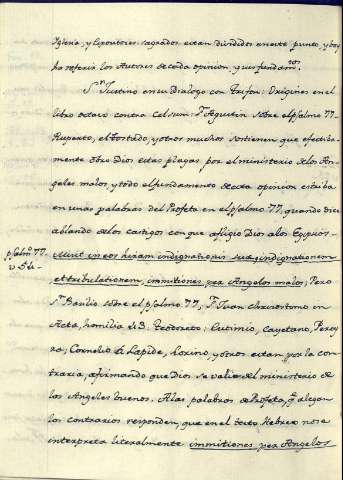 Iglesia, y Expositores sagrados estan divididos en este punto, y voy
ha referir los Autores de cada opinion, y sus fundam.tos
S.n Justino en su Dialogo con Trifon: Origenes en el
libro octavo contra Celsum: S.n Agustin sobre el psalmo 77-
Ruperto, el Tostado, y otros muchos sostienen que efectiba-
mente obro Dios estas plagas por el ministerio de los An-
geles malos, y todo el fundamento de esta opinion estriba
en unas palabras del Profeta en el psalmo 77, quando dice
ablando de los castigos con que afligio Dios a los Egypcios-
psalm.o 77. Misit in eos hiram indignationis suæ, indignationem
v 54- et tribulationem, immitiones per Angelos malos; Pero
S.n Basilio sobre el psalmo 77, S.n Juan Chrisostomo in
Acta, homilia 43. Teodoreto; Eutimio, Cayetano, Perey-
ra; Cornelio à Lapide, Lorino, y otros estan por la con-
traria, afirmando que Dios se valio del ministerio de
los Angeles buenos. A las palabras del Profeta, q.e alegan
los contrarios responden, que en el testo Hebreo no se
interpreta literalmente immitiones per Angelos